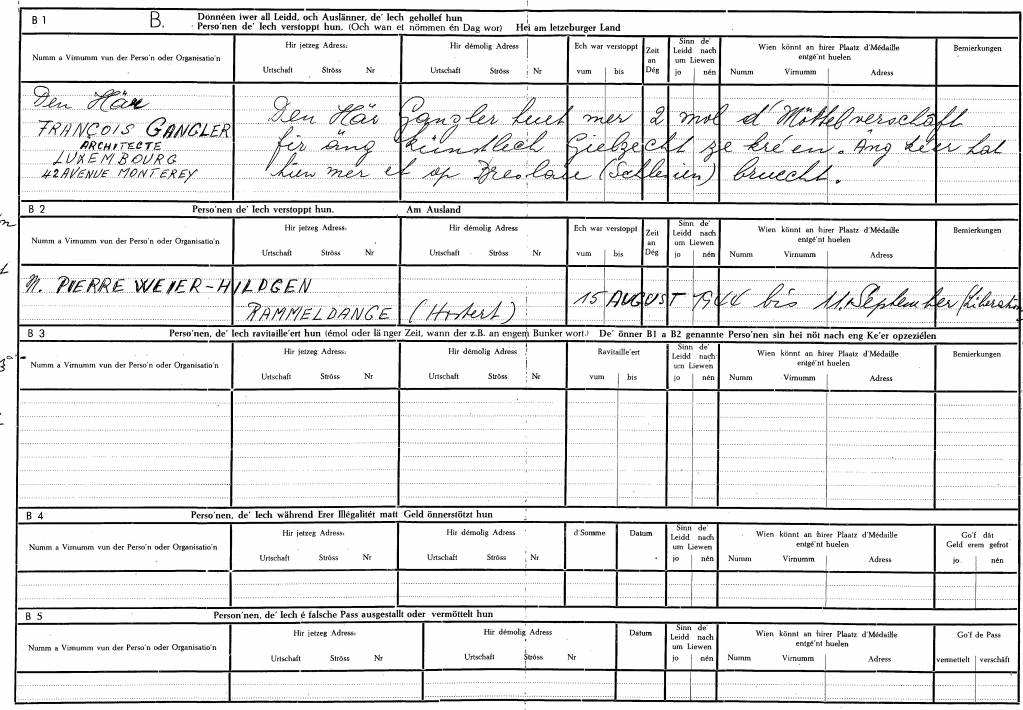 B 1 B. Donnéen iwer all Leidd, och Auslänner, de' Iech gehollef hun
Perso'nen de' Iech verstoppt hun. (Och wan et nömmen én Dag wor) Hei am letzeburger Land
Numm a Virnumm vun der Perso'n oder Organisatio'n
Hir jetzeg Adress:
Urtschaft Ströss Nr
Hir démolig Adress
Urtschaft Ströss Nr
Ech war verstoppt
vum bis
Zeit
an
Dég
Sinn de'
Leidd nach
um Liewen
jo nén
Wien könnt an hirer Plaatz d'Médaille
entgé'nt huelen
Numm Virnumm Adress
Bemierkungen
Den Här
FRANÇOIS GANGLER
ARCHITECTE
LUXEMBOURG
42 AVENUE MONTEREY
Den Här Gangler huet mer 2 mol d'Möttel verschaft
fir äng künstlech Gielzecht ze kréen. Äng keer hat
hien mer et op Breslau (Schlesien) bruecht.
B 2 Perso'nen de' Iech verstoppt hun. Am Ausland
Numm a Virnumm vun der Perso'n oder Organisatio'n
Hir jetzeg Adress:
Urtschaft Ströss Nr
Hir démolig Adress
Urtschaft Ströss Nr
Ech war verstoppt
vum bis
Zeit
an
Dég
Sinn de'
Leidd nach
um Liewen
jo nén
Wien könnt an hirer Plaatz d'Médaille
entgé'nt huelen
Numm Virnumm Adress
Bemierkungen
M. PIERRE WEIER-HILDGEN
RAMMELDANGE (Hostert)
15 AUGUST 1944 bis 11. September (Liberation
B 3 Perso'nen, de' Iech ravitaille'ert hun (émol oder länger Zeit, wann der z.B. an engem Bunker wort.) De' önner B1 a B2 genannte Perso'nen sin hei nöt nach eng Ke'er opzeziélen
Numm a Virnumm vun der Perso'n oder Organisatio'n
Hir jetzeg Adress:
Urtschaft Ströss Nr
Hir démolig Adress
Urtschaft Ströss Nr
Ravitaille'ert
vum bis
Sinn de'
Leidd nach
um Liewen
jo nén
Wien könnt an hirer Plaatz d'Médaille
entgé'nt huelen
Numm Virnumm Adress
Bemierkungen
B 4 Perso'nen, de' Iech während Erer Illégalitét matt Geld önnerstötzt hun
Numm a Virnumm vun der Perso'n oder Organisatio'n
Hir jetzeg Adress:
Urtschaft Ströss Nr
Hir démolig Adress
Urtschaft Ströss Nr
d'Somme
Datum
Sinn de'
Leidd nach
um Liewen
jo nén
Wien könnt an hirer Plaatz d'Médaille
entgé'nt huelen
Numm Virnumm Adress
Go'f dát
Geld erem gefrot
jo nén
B 5 Person'nen, de' Iech é falsche Pass ausgestallt oder vermöttelt hun
Numm a Virnumm vun der Perso'n oder Organisatio'n
Hir jetzeg Adress:
Urtschaft Ströss Nr
Hir démolig Adress
Urtschaft Ströss Nr
Datum
Sinn de'
Leidd nach
um Liewen
jo nén
Wien könnt an hirer Plaatz d'Médaille
entgé'nt huelen
Numm Virnumm Adress
Go'f de Pass
vermettelt verschäft